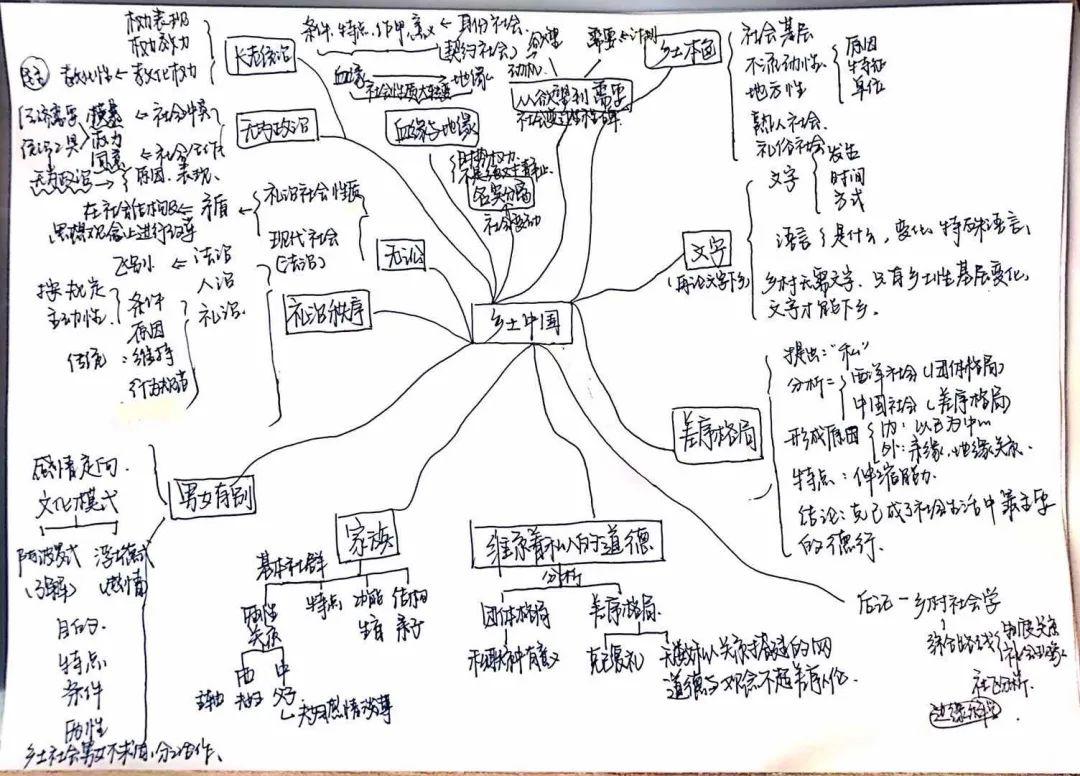 乡土中国
乡土本色
社会基层
不流动性
地方性
原因
特征
单位
熟人社会
礼俗社会
文字
(再论文字下乡)
文字
发生
时间
方式
语言
是什么,变化,特殊语言,
乡村无需文字,只有乡土性基层变化,
文字才能下乡。
差序格局
提出:“私”
分析=
西洋社会(团体格局)
中国社会(差序格局)
形成原因
内:以己为中心
外:亲缘、地缘关系.
特点:伸缩能力.
结论:克己成了社会生活中最主要
的德行.
维系着私人的道德
分析
团体格局
差序格局.
克己复礼
道德与观念不超差序人伦.
家族
基本社群
特点
功能
结构
生育
亲子
两性
关系
西
中
夫妇
夫妇感情淡薄
男女有别
感情定向.
文化模式
阿波罗式
浮士德式
目的
特点
条件
两性
乡土社会男女不求同,分工合作、
礼治秩序
法治
人治
礼治
按规定
主动性
传统
条件
原因
维持
无讼
礼治社会性质
现代社会
(法治)
矛盾
在社会结构及
思想观念上进行改革
无为政治
社会冲突
社会合作
权力
同意
原因、表现、
长老统治
教化权力
教化性
权力表现
权力效力
条件、特点、作用、意义
血缘与地缘
血缘
地缘
社会性质大转变
身份社会
(契约社会)
名实分离
时势权力
社会变动
从欲望到需要
欲望
动机
需要
计划
后记-乡村社会学
社区分析.